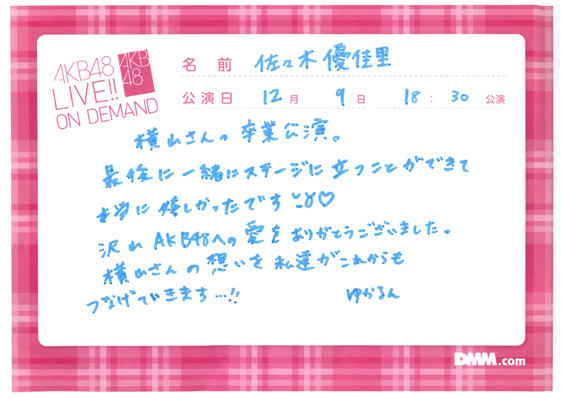 AKB48
LIVE!!
ON DEMAND
AKB
48
名前 佐々木優佳里
公演日 12月 9日 18:30 公演
横山さんの卒業公演。
最後に一緒にステージに立つことができて
本当に嬉しかったです♡
沢山AKB48への愛をありがとうございました。
横山さんの想いを私達がこれからも
つなげていきます…!!
ゆかるん
DMM.com